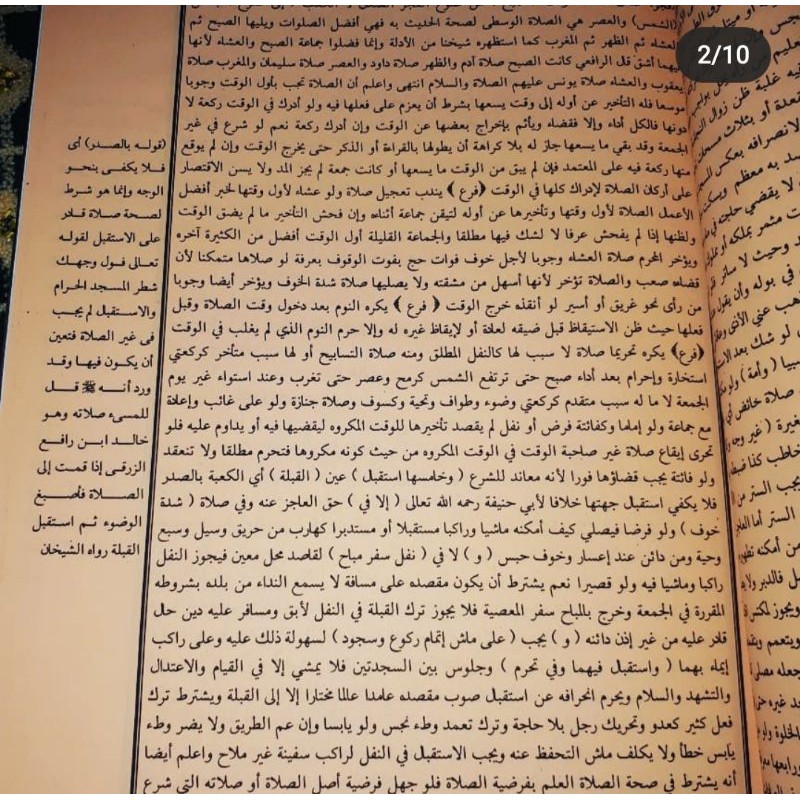 2/10
(الشمس) والعصر هي الصلاة الوسطى لصحة الحديث به فهي أفضل الصلوات ويليها الصبح ثم
العشاء ثم الظهر ثم المغرب كما استظهره شيخنا من الأدلة وإنما فضلوا جماعة الصبح والعشاء لأنها
فيهما أشق قال الرافعي كانت الصبح صلاة آدم والظهر صلاة داود والعصر صلاة سليمان والمغرب صلاة
يعقوب والعشاء صلاة يونس عليهم الصلاة والسلام انتهى واعلم أن الصلاة تجب بأول الوقت وجوبا
موسعا فله التأخير عن أوله إلى وقت يسعها بشرط أن يعزم على فعلها فيه ولو أدرك في الوقت ركعة لا
دونها فالكل أداء وإلا فقضاء ويأثم بإخراج بعضها عن الوقت وإن أدرك ركعة نعم لو شرع في غير
الجمعة وقد بقي ما يسعها جاز له بلا كراهة أن يطولها بالقراءة أو الذكر حتى يخرج الوقت وإن لم يوقع
منها ركعة فيه على المعتمد فإن لم يبق من الوقت ما يسعها أو كانت جمعة لم يجز المد ولا يسن الاقتصار
على أركان الصلاة لإدراك كلها في الوقت ﴿ فرع ﴾ يندب تعجيل صلاة ولو عشاء لأول وقتها لخبر أفضل
الأعمال الصلاة لأول وقتها وتأخيرها عن أوله لتيقن جماعة أثناءه وإن فحش التأخير ما لم يضق الوقت
ولظنها إذا لم يفحش عرفا لا لشك فيها مطلقا والجماعة القليلة أول الوقت أفضل من الكثيرة آخره
ويؤخر المحرم صلاة العشاء وجوبا لأجل خوف فوات حج بفوت الوقوف بعرفة لو صلاها متمكنا لأن
قضاءه صعب والصلاة تؤخر لأنها أسهل من مشقته ولا يصليها صلاة شدة الخوف ويؤخر أيضا وجوبا
من رأى نحو غريق أو أسير لو أنقذه خرج الوقت ﴿ فرع ﴾ يكره النوم بعد دخول وقت الصلاة وقبل
فعلها حيث ظن الاستيقاظ قبل ضيقه لعادة أو لإيقاظ غيره له وإلا حرم النوم الذي لم يغلب في الوقت
﴿فرع﴾ يكره تحريما صلاة لا سبب لها كالنفل المطلق ومنه صلاة التسابيح أو لها سبب متأخر كركعتي
استخارة وإحرام بعد أداء صبح حتى ترتفع الشمس كرمح وعصر حتى تغرب وعند استواء غير يوم
الجمعة لا ما له سبب متقدم كركعتي وضوء وطواف وتحية وكسوف وصلاة جنازة ولو على غائب وإعادة
مع جماعة ولو إماما وكفائتة فرض أو نفل لم يقصد تأخيرها للوقت المكروه ليقضيها فيه أو يداوم عليه فلو
تحرى إيقاع صلاة غير صاحبة الوقت في الوقت المكروه من حيث كونه مكروها فتحرم مطلقا ولا تنعقد
ولو فائتة يجب قضاؤها فورا لأنه معاند للشرع ( وخامسها استقبال ) عين ( القبلة ) أي الكعبة بالصدر
فلا يكفي استقبال جهتها خلافا لأبي حنيفة رحمه الله تعالى ( إلا في ) حق العاجز عنه وفي صلاة ( شدة
خوف ) ولو فرضا فيصلي كيف أمكنه ماشيا وراكبا مستقبلا أو مستدبرا كهارب من حريق وسيل وسبع
وحية ومن دائن عند إعسار وخوف حبس ( و ) لا في ( نفل سفر مباح ) لقاصد محل معين فيجوز النفل
راكبا وماشيا فيه ولو قصيرا نعم يشترط أن يكون مقصده على مسافة لا يسمع النداء من بلده بشروطه
المقررة في الجمعة وخرج بالمباح سفر المعصية فلا يجوز ترك القبلة في النفل لآبق ومسافر عليه دين حال
قادر عليه من غير إذن دائنه ( و ) يجب ( على ماش إتمام ركوع وسجود ) لسهولة ذلك عليه وعلى راكب
إيماء بهما ( واستقبال فيهما وفي تحرم ) وجلوس بين السجدتين فلا يمشي إلا في القيام والاعتدال
والتشهد والسلام ويحرم انحرافه عن استقبال صوب مقصده عامدا عالما مختارا إلا إلى القبلة ويشترط ترك
فعل كثير كعدو وتحريك رجل بلا حاجة وترك تعمد وطء نجس ولو يابسا وإن عم الطريق ولا يضر وطء
يابس خطأ ولا يكلف ماش التحفظ عنه ويجب الاستقبال في النفل لراكب سفينة غير ملاح واعلم أيضا
أنه يشترط في صحة الصلاة العلم بفرضية الصلاة فلو جهل فرضية أصل الصلاة أو صلاته التي شرع
(قوله بالصدر) أى
فلا يكفى بنحو
الوجه وإنما هو شرط
لصحة صلاة قادر
على الاستقبل لقوله
تعالى فول وجهك
شطر المسجد الحرام
والاستقبل لم يجب
فى غير الصلاة فتعين
أن يكون فيها وقد
ورد أنه ﷺ قال
للمسىء صلاته وهو
خالد ابن رافع
الزرقى إذا قمت إلى
الصلاة فأصبغ
الوضوء ثم استقبل
القبلة رواه الشيخان